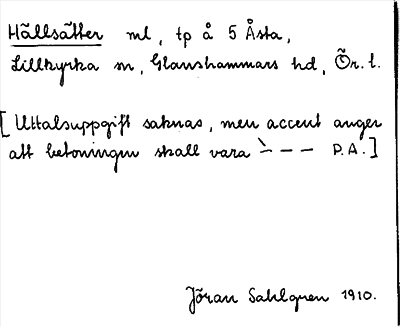 Hällsätter ml, tp å 5 Åsta,
Lillkyrka sn, Glanshammars hd, Ör. l.
[Uttalsuppgift saknas, men accent anger
att betoningen skall vara `– – – P.A.]
Jöran Sahlgren 1910.